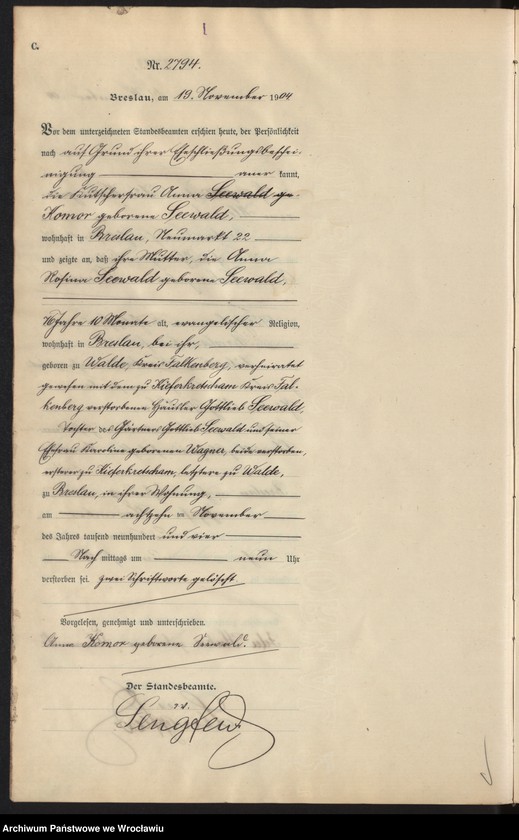 C.
Nr. 2794.
Breslau, am 19. November 1904
Vor dem unterzeichneten Standesbeamten erschien heute, der Persönlichkeit
nach auf Grund ihrer Eheschließungsbeschei-
nigung anerkannt,
die Kutscherfrau Anna Seewald ge-
Komor geborene Seewald,
wohnhaft in Breslau, Neumarkt 22
und zeigte an, daß ihre Mutter, die Anna
Rosina Seewald geborene Seewald,
Jahre 10 Monate alt, evangelischer Religion,
wohnhaft in Breslau, bei ihr,
geboren zu Walde, Kreis Falkenberg, verheiratet
gewesen mit dem zu Kieferkretscham Kreis Fal-
kenberg verstorbenen Häusler Gottlieb Seewald,
Tochter des Gärtners Gottlieb Seewald und seiner
Ehefrau Karoline geborenen Wagner, beide verstorben,
ersterer zu Kieferkretscham, letztere zu Walde,
zu Breslau, in ihrer Wohnung,
am achtzehn ten November
des Jahres tausend neunhundert und vier
Nach mittags um neun Uhr
verstorben sei. Zwei Schriftworte gelöscht
Vorgelesen, genehmigt und unterschrieben.
Anna Komor geborene Seewald.
Der Standesbeamte.
Archiwum Państwowe we Wrocławiu